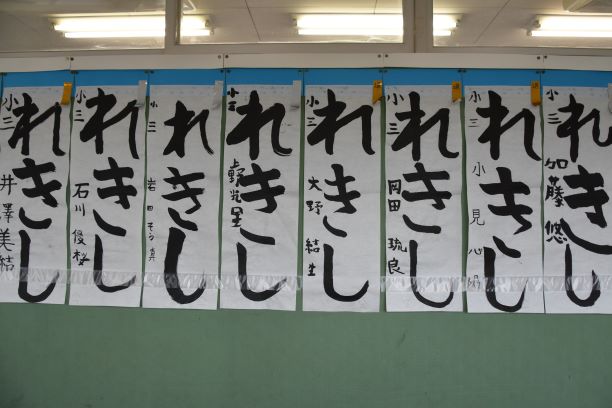 れきし
小三 加藤 悠
れきし
小三 小見 心
れきし
小三 岡田 琉良
れきし
小三 大野 結生
れきし
小三
れきし
小三 岩田
れきし
小三 石川
れきし
小三 井澤 美結